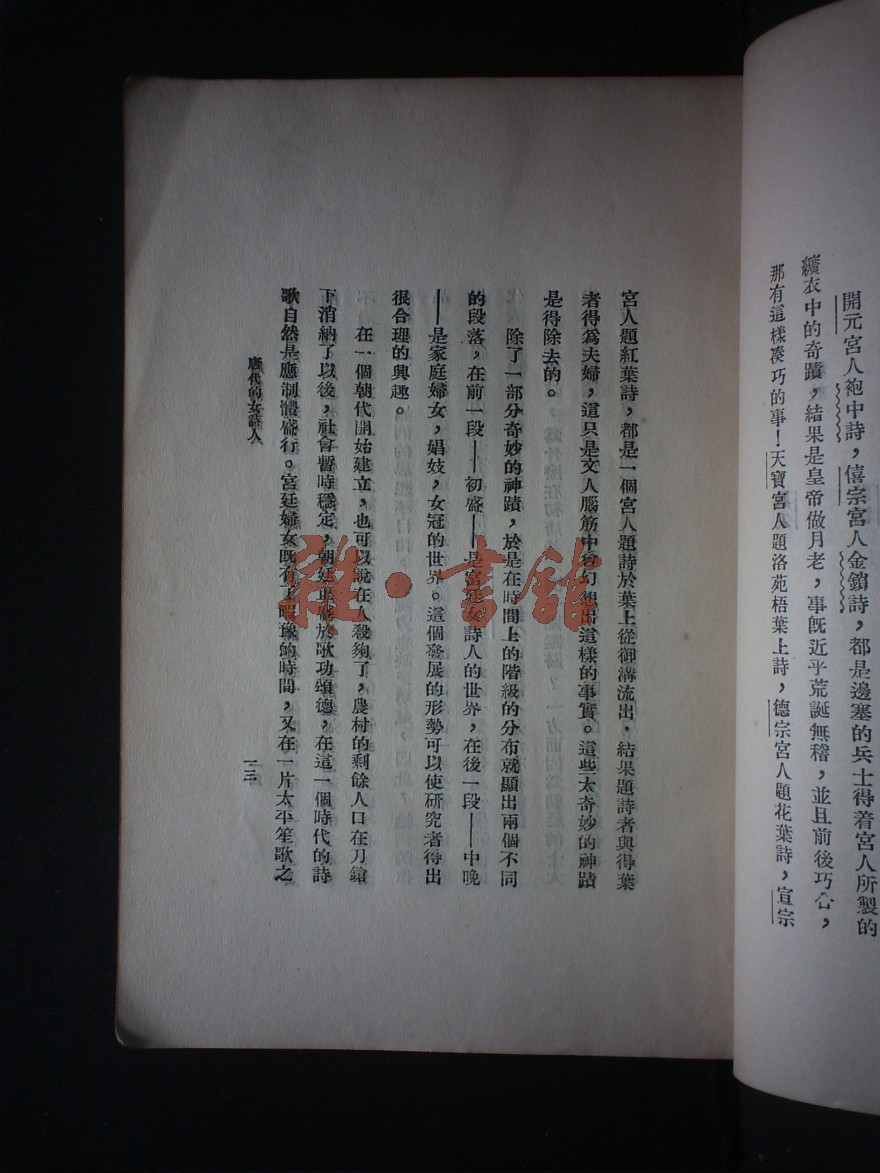 開元宮人袍中詩，僖宗宮人金鎖詩，都是邊塞的兵士得着宮人所製的
纊衣中的奇蹟，結果是皇帝做月老，事旣近乎荒誕無稽，並且前後巧合，
那有這樣凑巧的事！天寶宮人題洛苑梧葉上詩，德宗宮人題花葉詩，宣宗
宮人題紅葉詩，都是一個宮人題詩於葉上從御溝流出．結果題詩者與得葉
者得爲夫婦，這只是文人腦筋中會幻想出這樣的事實。這些太奇妙的神蹟
是得除去的。
除了一部分奇妙的神蹟，於是在時間上的階級的分布就顯出兩個不同
的段落，在前一段——初盛——是宮廷女詩人的世界，在後一段——中晚
——是家庭婦女，娼妓，女冠的世界。這個發展的形勢可以使硏究者得出
很合理的興趣。
在一個朝代開始建立，也可以說在人殺夠了，農村的剩餘人口在刀鎗
下消納了以後，社會暫時穩定，朝廷也於歌功頌德，在這一個時代的詩
歌自然是應制體盛行。宮廷婦女旣有了暇豫的時間，又在一片太平笙歌之
唐代的女詩人
一三
雜·書館